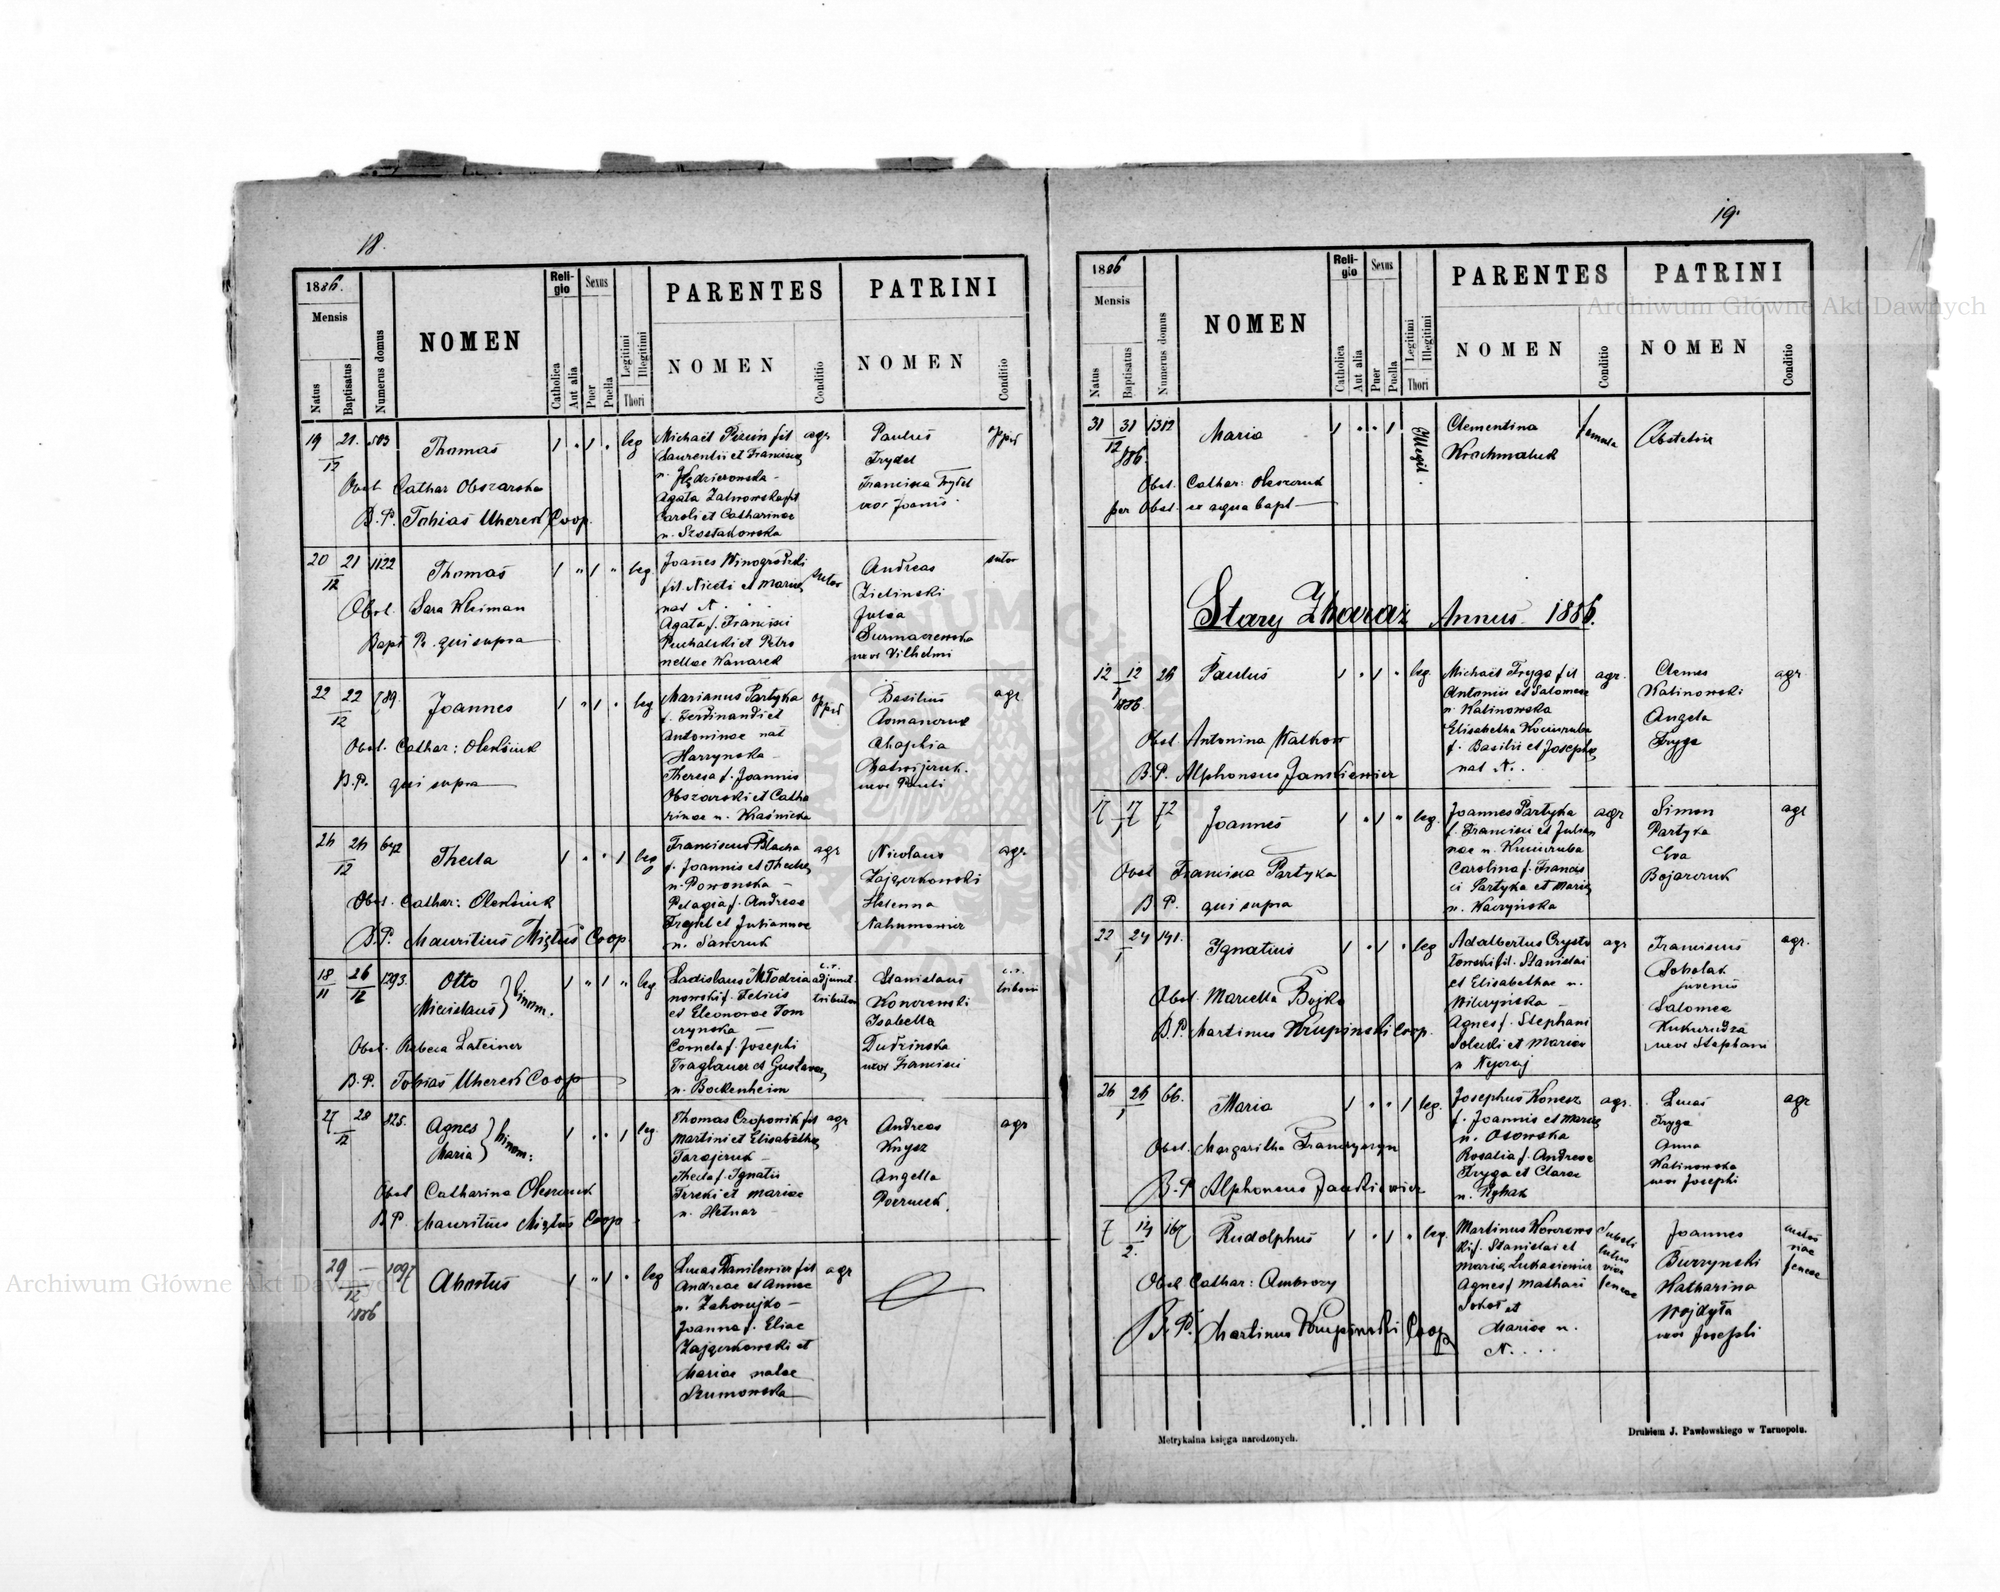 18.
1886.
Mensis
Natus
Baptisatus
Numerus domus
NOMEN
Religio
Catholica
Aut alia
Sexus
Puer
Puella
Legitimi
Illegitimi
Thori
PARENTES
NOMEN
Conditio
PATRINI
NOMEN
Conditio
19 21. 503
12
Thomas
leg
Obst Cathar Obszarska
B. P. Tobias Uherek Coop.
Laurentii et Francisca
Agata
Caroli et Catharinae
n. Szostakowska
agr
Paulus
Frydel
Francisca Frydel
uxor Joanis
20 21 1122
12
Thomas
leg.
Obst. Sara Kleiman
Bapt P. qui supra
Joannes Winogrodzki
nat N. . .
Agata f. Francisci
Puchalski et Petro
nellae Kanarek
sutor
Andreas
Zielinski
Julia
Surmaczewska
uxor Vilhelmi
sutor
22 22 789.
12
Joannes
leg
Obst. Cathar: Oleksiuk
B. P. qui supra
Marianus Partyka
f. Ferdinandi et
Antoninae nat
Harrynska
Theresa f. Joannis
Obszarski et Catha
rinae n. Kraśnicka
Basilius
Romanczuk
uxor Pauli
agr
26 26 642
12
Thecla
leg
Obst. Cathar: Oleksiuk
B. P. Mauritius Miętus Coop.
Franciscus Blacha
f. Joannis et Theclae
n. Powonska
Pelagia f. Andreae
Frydel et Juliannae
n. Sawczuk
agr
Nicolaus
Zajączkowski
Helenna
Nahumowicz
agr.
18 26 1293.
11 12
Otto
Miecislaus } binom.
leg
Obst. Rebeca Lateiner
B. P. Tobias Uherek Coop
Ladislaus Młodzia
nowski f. Felicis
et Eleonorae Tom
czynska
Cornela f. Josephi
Traglauer et Gustavae
n. Bockenheim
c. r.
adjunct.
Stanislaus
Konozenski
Isabella
Dudzinska
uxor Francisci
c. r.
27 28 825.
12
Agnes
Maria } binom:
leg.
Obst Catharina Olesczuk
B P. Mauritius Miętus Coop
Thomas Czopownik fil
Martini et Elisabethae
Tarajczuk
Thecla f. Ignatii
Tereki et Mariae
n. Hetnar
agr
Andreas
Knysz
Angella
agr
29 — 1097
12
1886
Abortus
leg
Lucas Danilewicz fil
Andreae et Annae
n. Zahorujko
Joanna f. Eliae
Zajączkowski et
Mariae natae
Szumowska
agr
19.
1886
Mensis
Natus
Baptisatus
Numerus domus
NOMEN
Religio
Catholica
Aut alia
Sexus
Puer
Puella
Legitimi
Illegitimi
Thori
PARENTES
NOMEN
Conditio
PATRINI
NOMEN
Conditio
31 31 1312
12
886.
Maria
Illegit.
Obst. Cathar: Olesczuk
per Obst. ex aqua bapt
Clementina
Krochmaluk
famula
Obstetrix
Stary Zbaraż Annus 1886.
12 12 26
1
1886.
Paulus
leg.
Obst. Antonina Walkow
B. P. Alphonsus Jankiewicz
Michaël Fryga fil
Antonii et Salomeae
n. Kalinowska
Elisabetha Kociuruba
f. Basilii et Josephae
nat N. .
agr.
Clemes
Kalinowski
Angela
Fryga
agr.
17 17 72
1
Joannes
leg.
Obst Francisca Partyka
B P. qui supra
Joannes Partyka
f. Francisci et Julian
nae n. Kuciuruba
Carolina f. Francis
ci Partyka et Mariae
n. Kaczyńska
agr
Simon
Partyka
Eva
Bojarczuk
agr
22 24 141.
1
Ignatius
leg
Obst. Marcella Bojko
B. P. Martinus Krupinski Coop.
Adalbertus Crysto
fowski fil. Stanislai
et Elisabethae n.
Wilczyńska
Agnes f. Stephani
Solecki et Mariae
n Nejczaj
agr
Franciscus
juvenis
Salomea
Kukurudza
uxor Stephani
agr.
26 26 66.
1
Maria
leg.
Obst. Margaritha Franczyszyn
B. P Alphonsus Jankiewicz
Josephus Koncsz
f. Joannis et Mariae
n. Osowska
Rosalia f. Andreae
Fryga et Clarae
n. Rybak
agr.
Lucas
Fryga
Anna
Kalinowska
uxor Josephi
agr
7 14 167
2.
Rudolphus
leg.
Obst Cathar: Ambrozy
B. P. Martinus Krupinski Coop
Martinus Kowzows
ki f. Stanislai et
Mariae Lukasiewicz
Agnes f Mathaei
Sokoł et
Mariae n.
N. . . .
Joannes
Burzynski
Katharina
Wojdyła
uxor Josephi
Metrykalna księga narodzonych.
Drukiem J. Pawłowskiego w Tarnopolu.
Archiwum Główne Akt Dawnych
Archiwum Główne Akt Dawnych